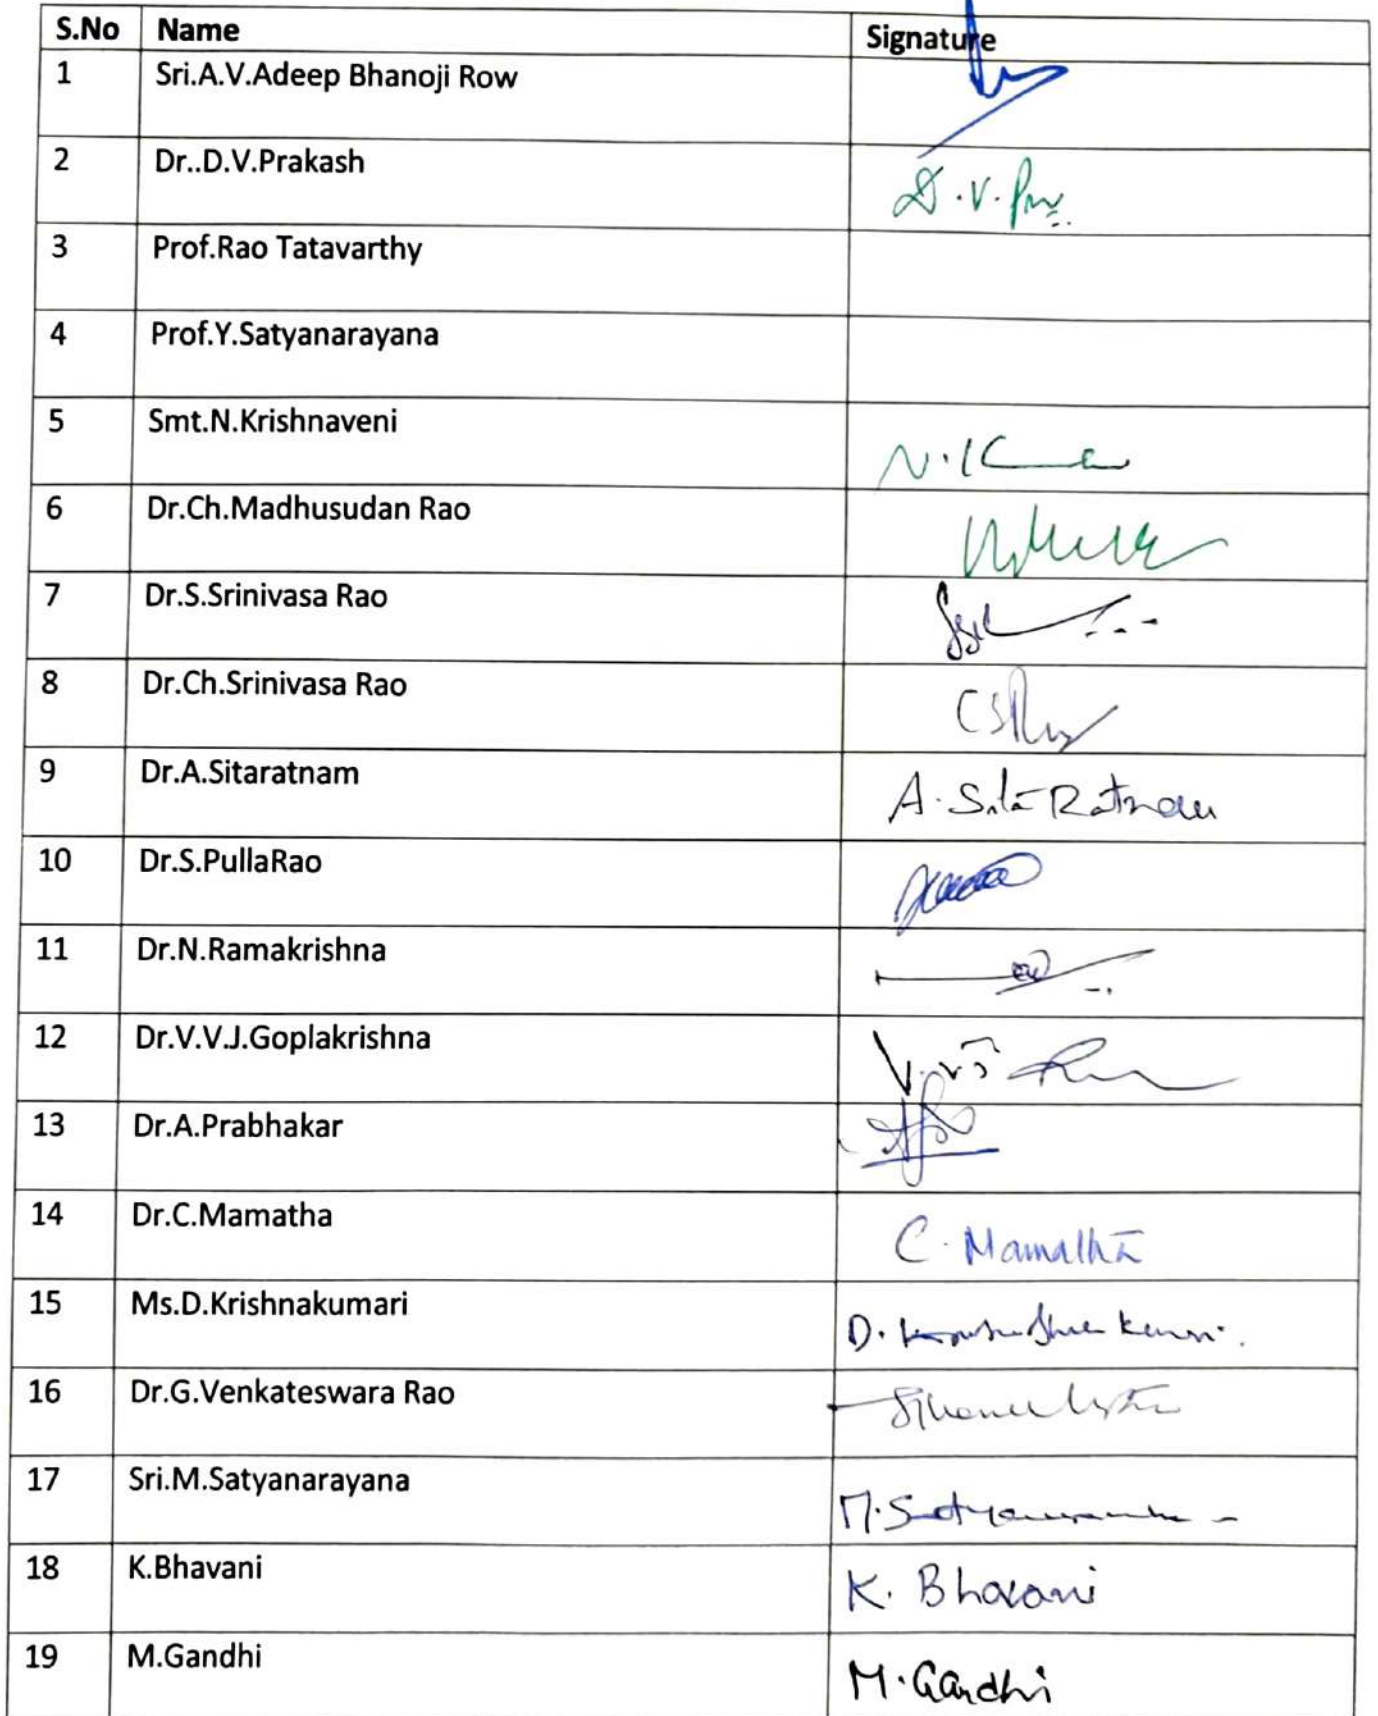 S.No Name Signature
1 Sri.A.V.Adeep Bhanoji Row
2 Dr..D.V.Prakash D.V.
3 Prof.Rao Tatavarthy
4 Prof.Y.Satyanarayana
5 Smt.N.Krishnaveni N.K
6 Dr.Ch.Madhusudan Rao
7 Dr.S.Srinivasa Rao
8 Dr.Ch.Srinivasa Rao
9 Dr.A.Sitaratnam A. Sita Ratnam
10 Dr.S.PullaRao
11 Dr.N.Ramakrishna
12 Dr.V.V.J.Goplakrishna
13 Dr.A.Prabhakar
14 Dr.C.Mamatha C. Mamatha
15 Ms.D.Krishnakumari D.
16 Dr.G.Venkateswara Rao
17 Sri.M.Satyanarayana M.
18 K.Bhavani K. Bhavani
19 M.Gandhi M.Gandhi